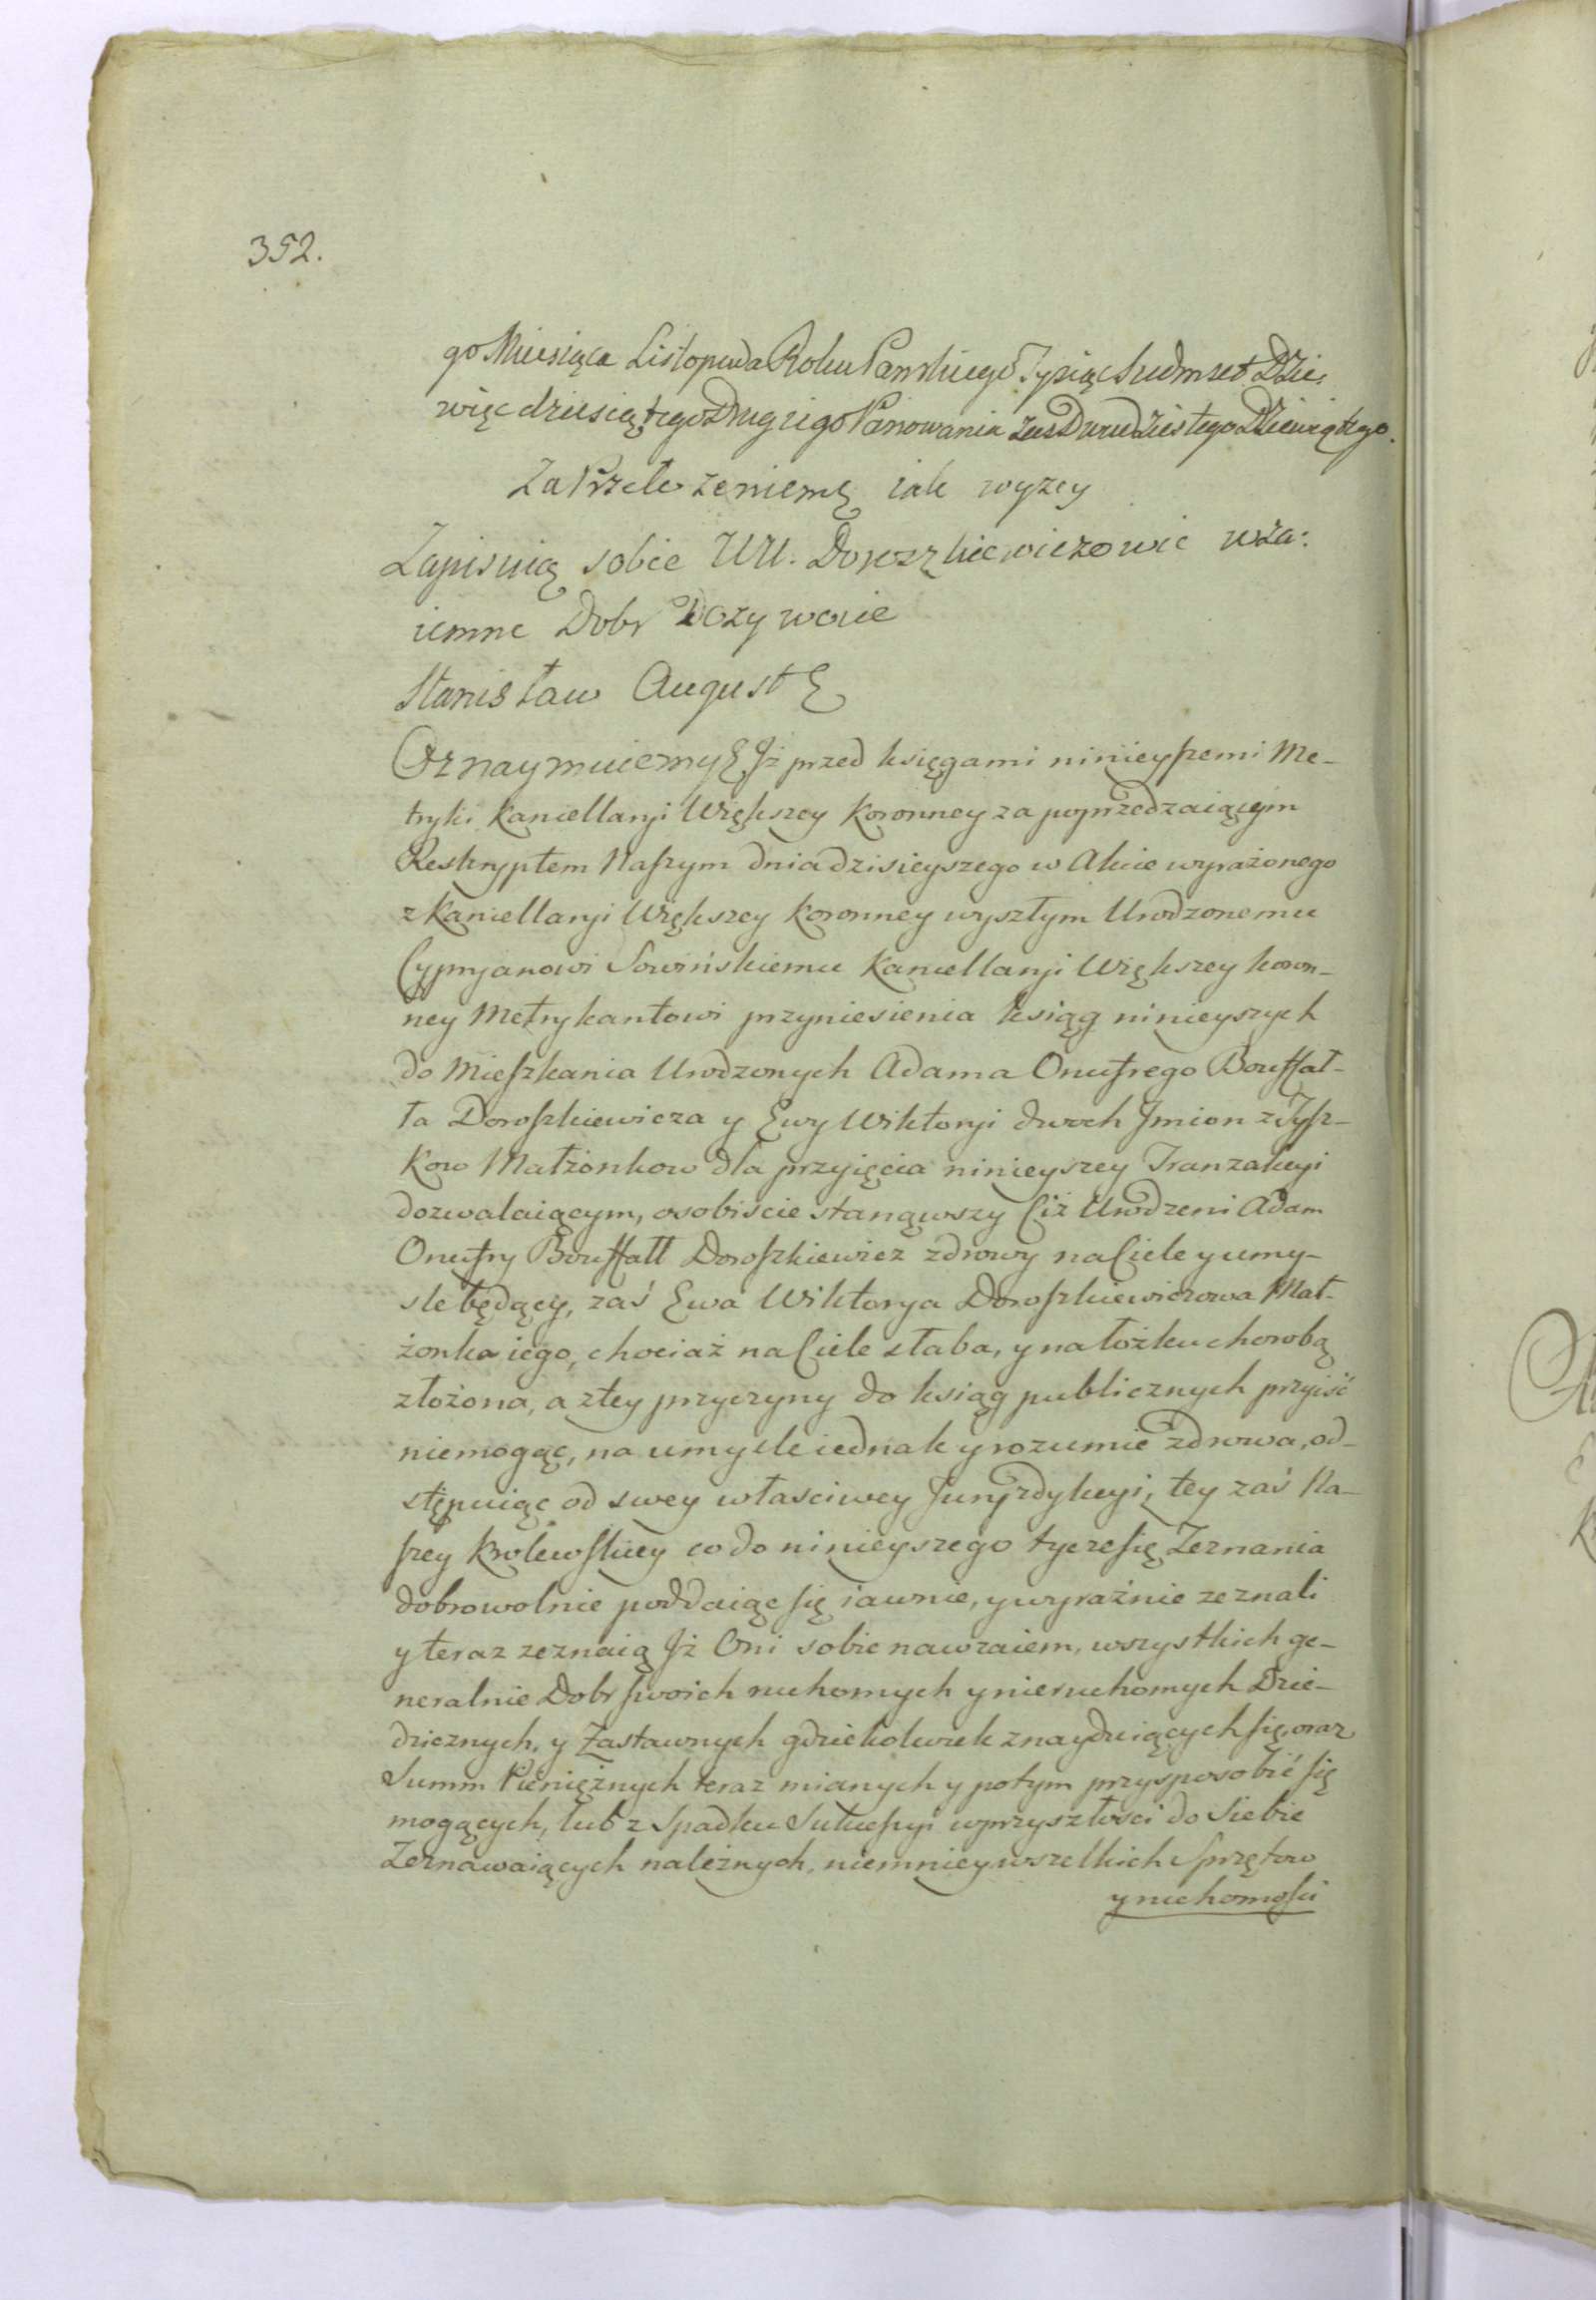 352.
go Miesiąca Listopada Roku Panskiego Tysiąc Siedmset Dzie:
więcdziesiątego Drugiego Panowania zas Dwudziestego Dziewiątego.
Za Przełożeniem iak wyzey
Zapisuią sobie UU. Doroszkiewiczowie wza:
iemne Dobr Dozywocie
Stanisław August
Oznaymuiemy Iż przed księgami ninieyszemi Me-
tryki Kancellaryi Większey Koronney za poprzedzaiącym
Reskryptem Naszym dnia dzisieyszego w Akcie wyrażonego
z Kancellaryi Większey Koronney wyszłym Urodzonemu
Cypryanowi Sowińskiemu Kancellaryi Większey Koron-
ney Metrykantowi przyniesienia ksiąg ninieyszych
do Mieszkania Urodzonych Adama Onufrego Bouffał-
ła Doroszkiewicza y Ewy Wiktoryi dwoch Imion z Tysz-
kow Małżonkow dla przyięcia ninieyszey Tranzakcyi
dozwalaiącym, osobiscie stanąwszy Ciż Urodzeni Adam
Onufry Bouffałł Doroszkiewicz zdrowy na Ciele y umy-
sle będący, zaś Ewa Wiktorya Doroszkiewiczowa Mał-
żonka iego, chociaż na Ciele słaba, y na łożku chorobą
złożona, a z tey przyczyny do ksiąg publicznych przyiść
niemogąc, na umysle iednak y rozumie zdrowa, od-
stępuiąc od swey własciwey Juryzdykcyi, tey zaś Na-
szey Krolewskiey co do ninieyszego tycze się Zeznania
dobrowolnie poddaiąc się iawnie, y wyraźnie zeznali
y teraz zeznaią Iż Oni sobie nawzaiem, wszystkich ge-
neralnie Dobr swoich ruchomych y nieruchomych Dzie-
dzicznych, y Zastawnych gdziekolwiek znayduiących się, oraz
Summ Pieniężnych teraz mianych y potym przysposobić się
mogących, lub z Spadku Sukcessyi w przyszłości do Siebie
Zeznawaiących należnych, niemniey wszelkich Sprzętow
y ruchomości